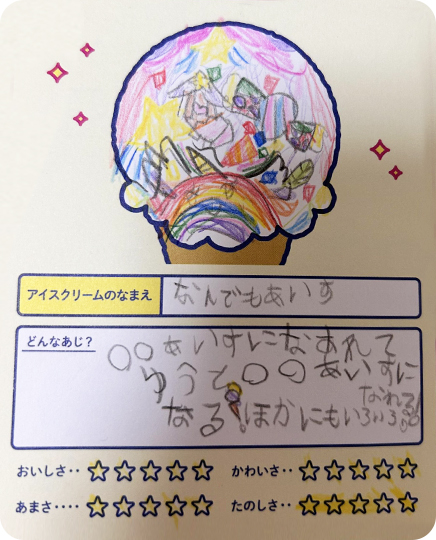 アイスクリームのなまえ
なんでもあいす
どんなあじ?
○○あいすになあれて
ゆうと○○あいすに
なる!ほかにもいろいろ
なれる
おいしさ‥ ☆☆☆☆☆
かわいさ‥ ☆☆☆☆☆
あまさ‥‥ ☆☆☆☆☆
たのしさ‥ ☆☆☆☆☆